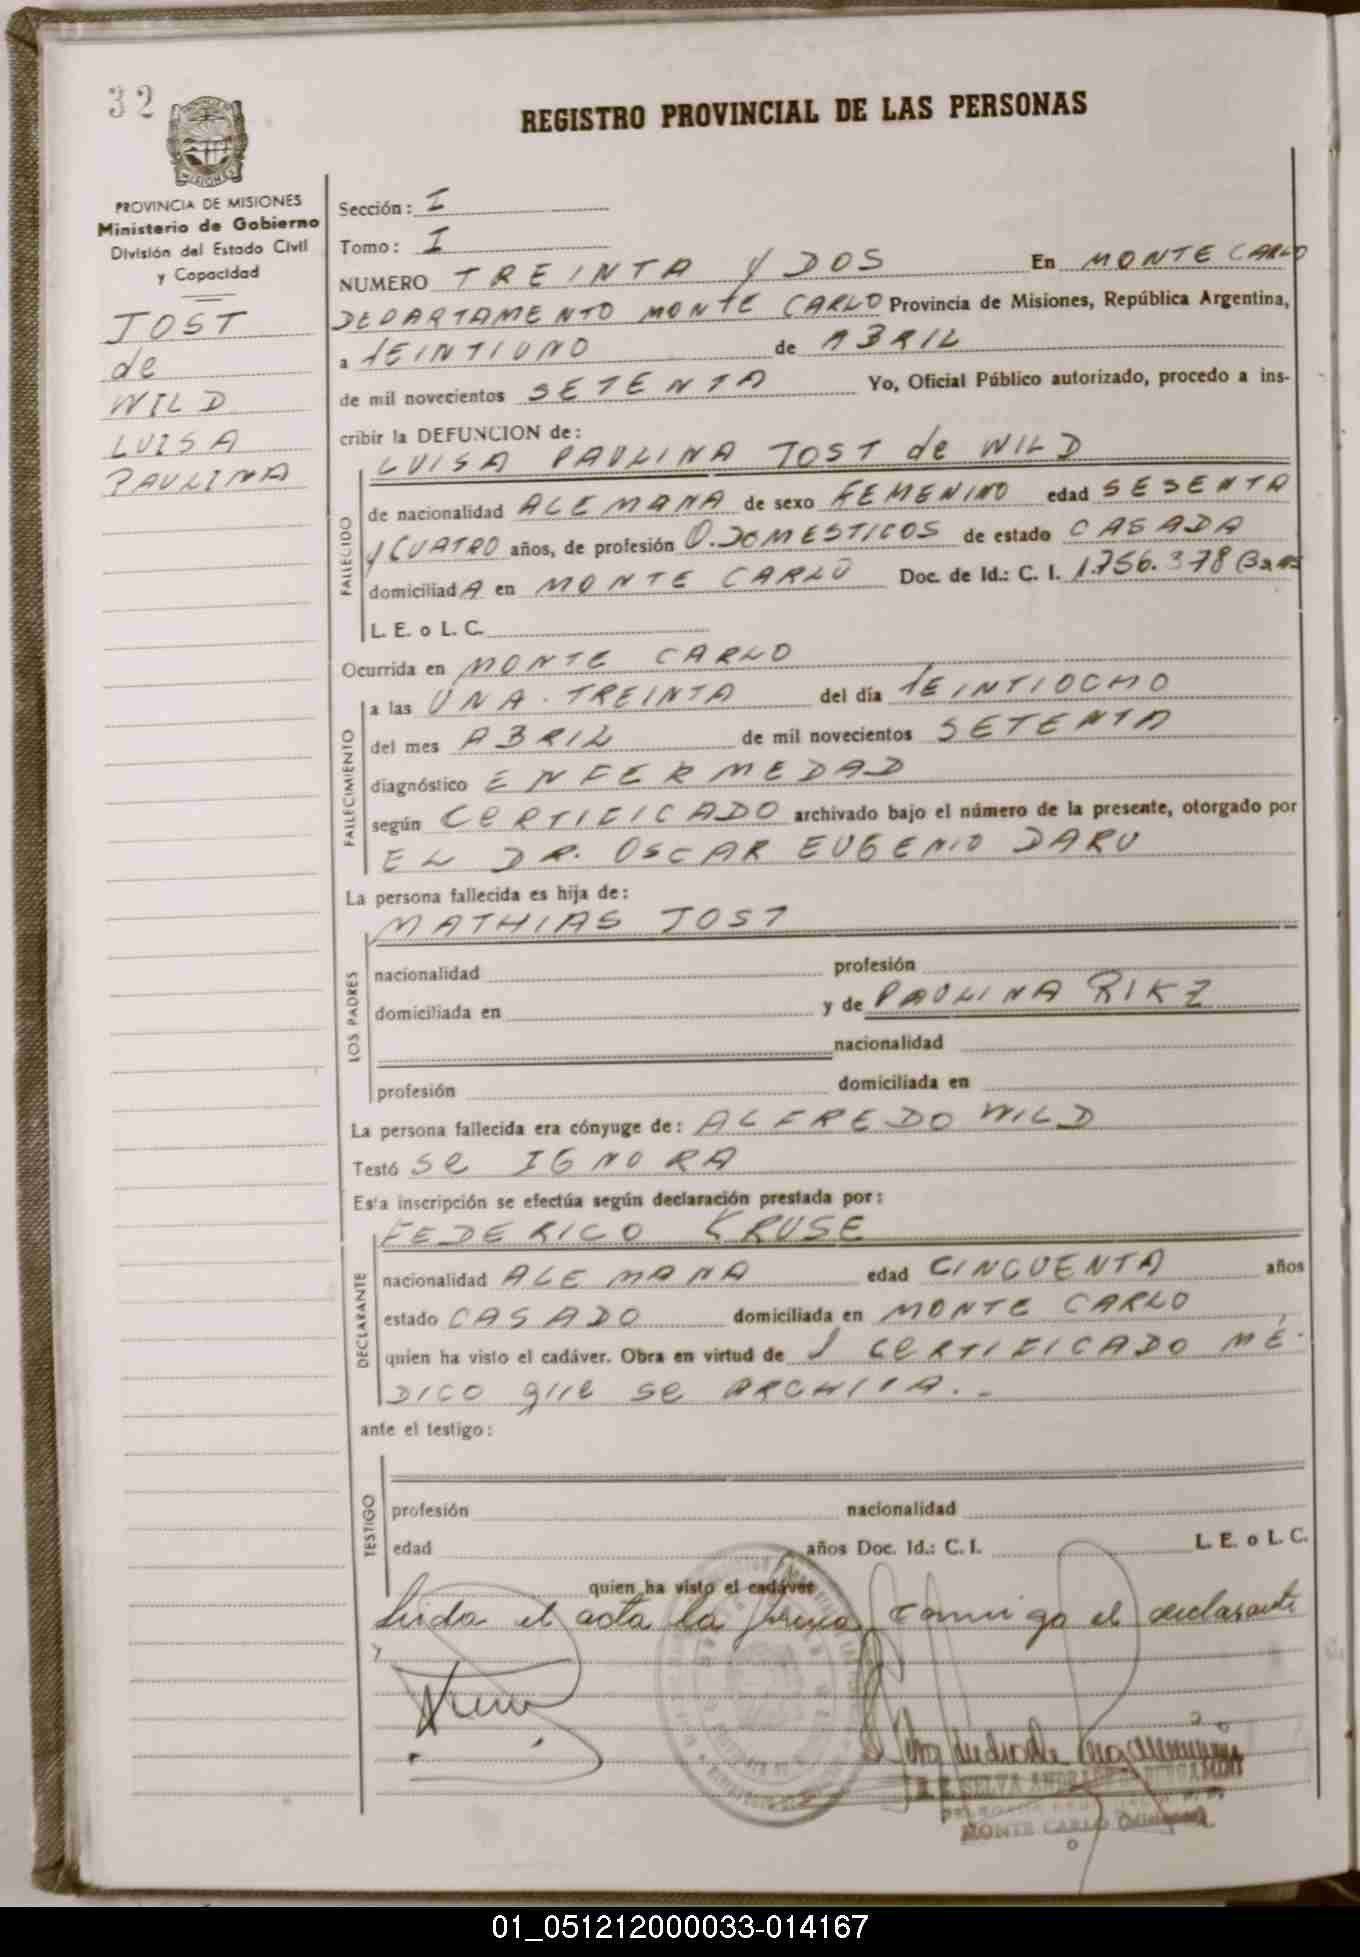 32
REGISTRO PROVINCIAL DE LAS PERSONAS
MISIONES
PROVINCIA DE MISIONES
Ministerio de Gobierno
División del Estado Civil
y Capacidad
JOST
de
WILD
LUISA
PAULINA
Sección: I
Tomo: I
NUMERO TREINTA y DOS En MONTE CARLO
DEPARTAMENTO MONTE CARLO Provincia de Misiones, República Argentina,
a VEINTIUNO de ABRIL
de mil novecientos SETENTA Yo, Oficial Público autorizado, procedo a ins-
cribir la DEFUNCION de:
LUISA PAULINA JOST de WILD
FALLECIDO
de nacionalidad ALEMANA de sexo FEMENINO edad SESENTA
y CUATRO años, de profesión Q.DOMESTICOS de estado CASADA
domiciliadA en MONTE CARLO Doc. de Id.: C. I. 1.756.378
L. E. o L. C.
Ocurrida en MONTE CARLO
FALLECIMIENTO
a las UNA. TREINTA del día VEINTIOCHO
del mes ABRIL de mil novecientos SETENTA
diagnóstico ENFERMEDAD
según CeRTIFICADO archivado bajo el número de la presente, otorgado por
EL DR. OSCAR EUGENIO DARU
La persona fallecida es hija de:
MATHIAS JOST
LOS PADRES
nacionalidad profesión
domiciliada en y de PAULINA RIKZ
nacionalidad
profesión domiciliada en
La persona fallecida era cónyuge de: ALFREDO WILD
Testó Se IGNORA
Esta inscripción se efectúa según declaración prestada por:
FEDERICO KRUSE
DECLARANTE
nacionalidad ALEMANA edad CINCUENTA años
estado CASADO domiciliada en MONTE CARLO
quien ha visto el cadáver. Obra en virtud de 1 CeRTIFICADO MÉ-
DICO que se ARCHIVA.-
ante el testigo:
TESTIGO
profesión nacionalidad
edad años Doc. Id.: C. I. L. E. o L. C.
quien ha visto el cadáver
Leída el acta la firma conmigo el declarante
MONTE CARLO
01_051212000033-014167